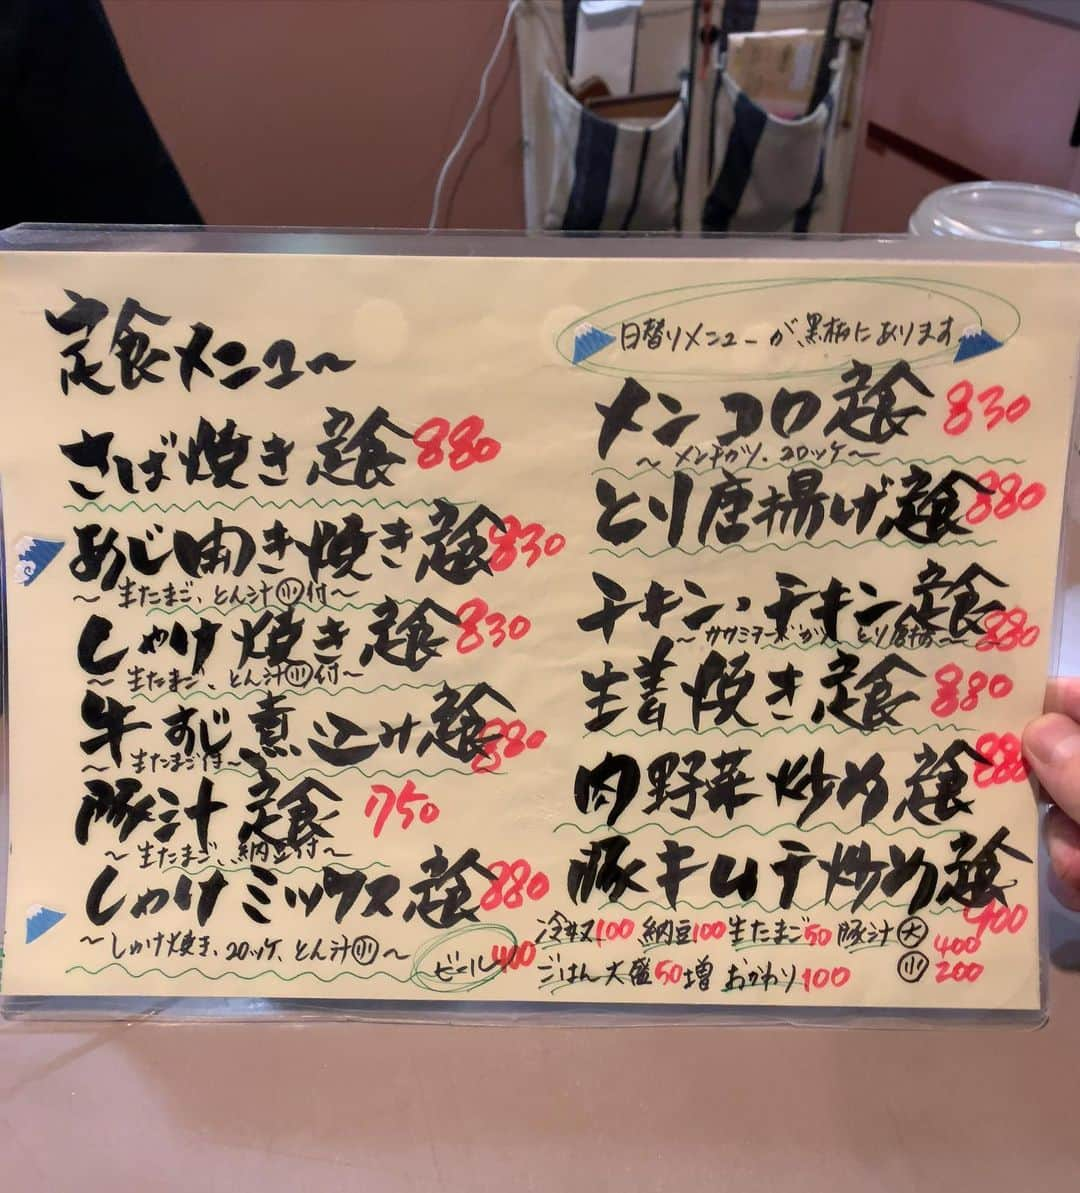 定食メニュー
さば焼き定食 880
あじ開き焼き定食 830
～生たまご、とん汁㊙付～
しゃけ焼き定食 830
～生たまご、とん汁小付～
牛すじ煮込み定食 880
～生たまご付～
豚汁定食 750
～生たまご、納豆付～
しゃけミックス定食 880
～しゃけ焼き、コロッケ、とん汁小～
ビール 400
日替りメニューが、黒板にあります
メンコロ定食 830
～メンチカツ、コロッケ～
とり唐揚げ定食 880
チキン・チキン定食 880
～ササミチーズカツ、とり唐揚～
生姜焼き定食 880
肉野菜炒め定食 880
豚キムチ炒め定食 900
冷奴100 納豆100 生たまご50 豚汁 大 400
ごはん大盛50増 おかわり100 小 200